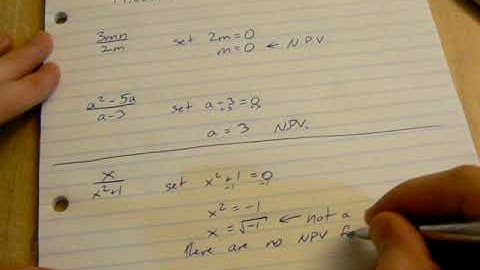 3mn/2m set 2m=0
m=0 ← N.P.V
a²-5a/a-3 set a-3=0
+3 +3
a = 3 N.P.V.
x/x²+1 set x²+1=0
-1 -1
x² = -1
x = √-1 ← not a
there are no NPV f